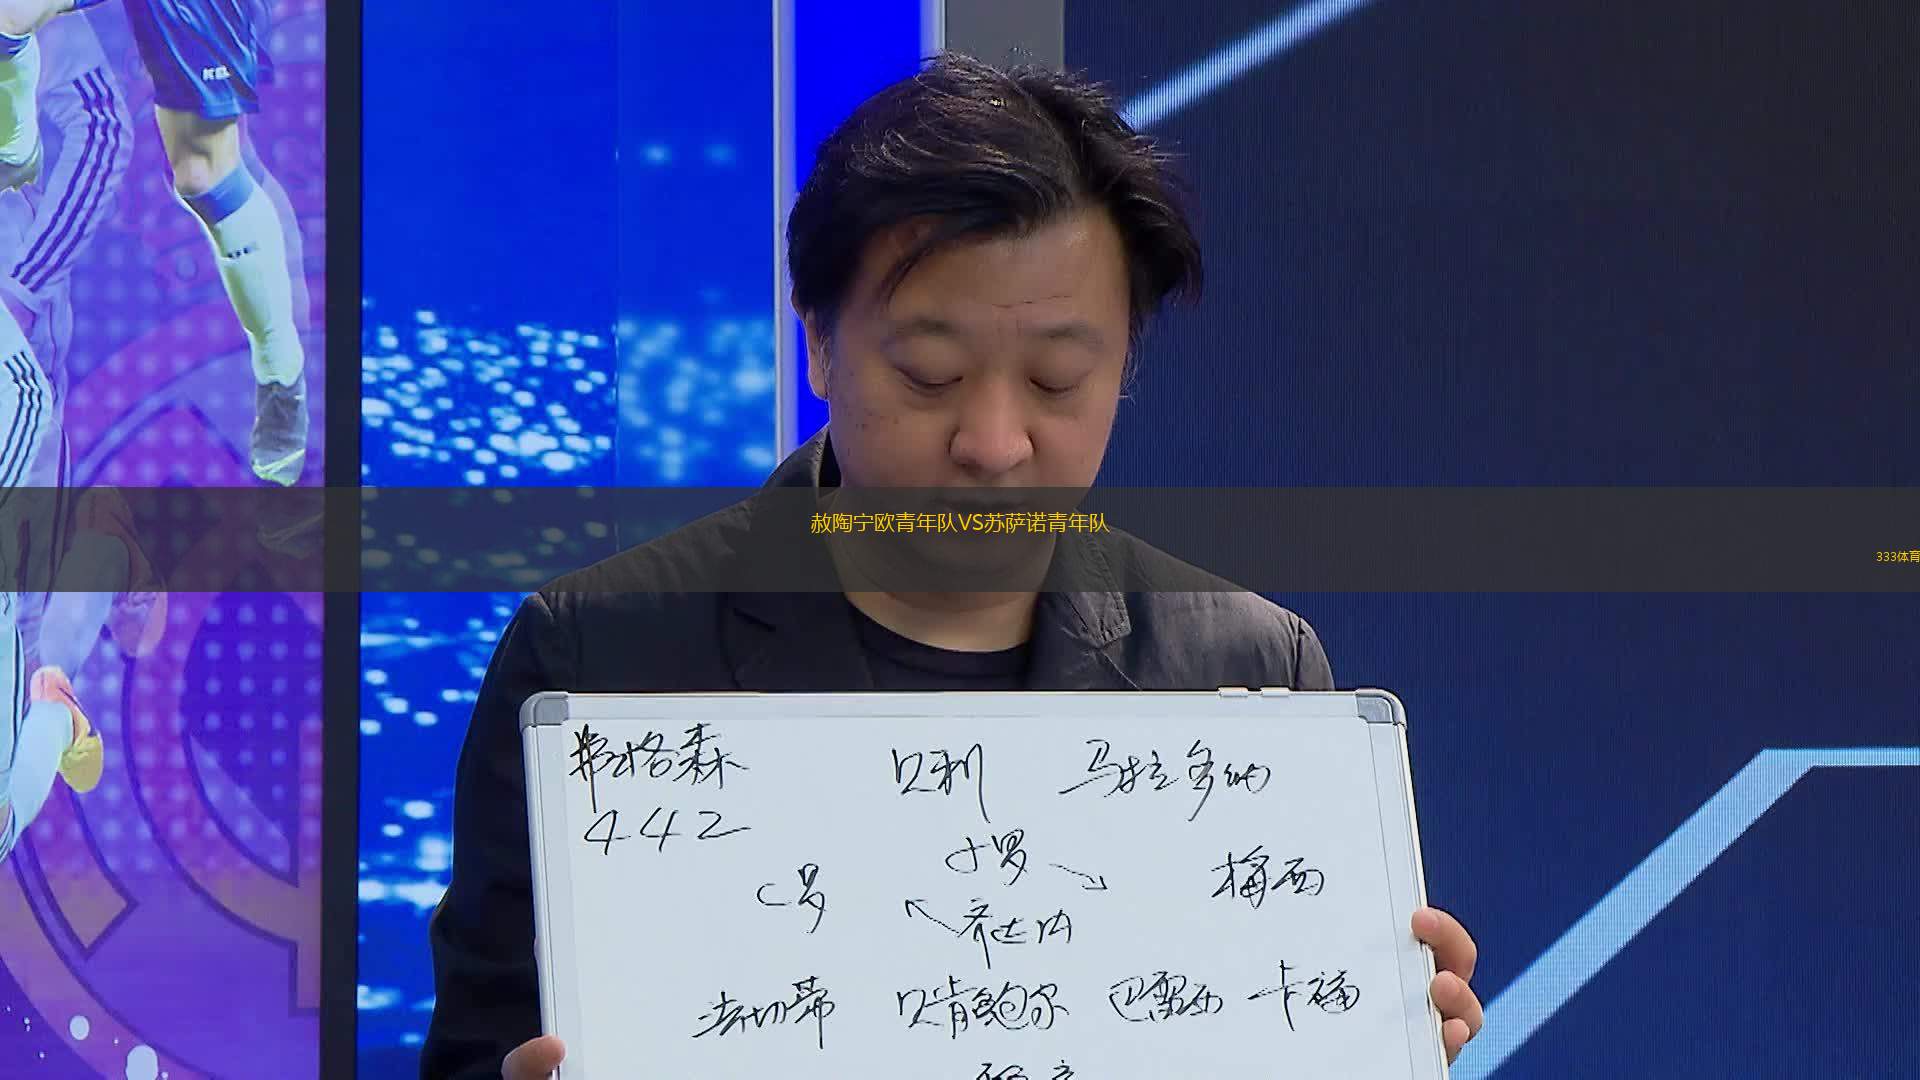 赦陶宁欧青年队VS苏萨诺青年队
333体育
弗格森 贝利 马拉多纳
442
小罗
C罗 梅西
齐达内
法切蒂 贝肯鲍尔 巴雷西 卡福